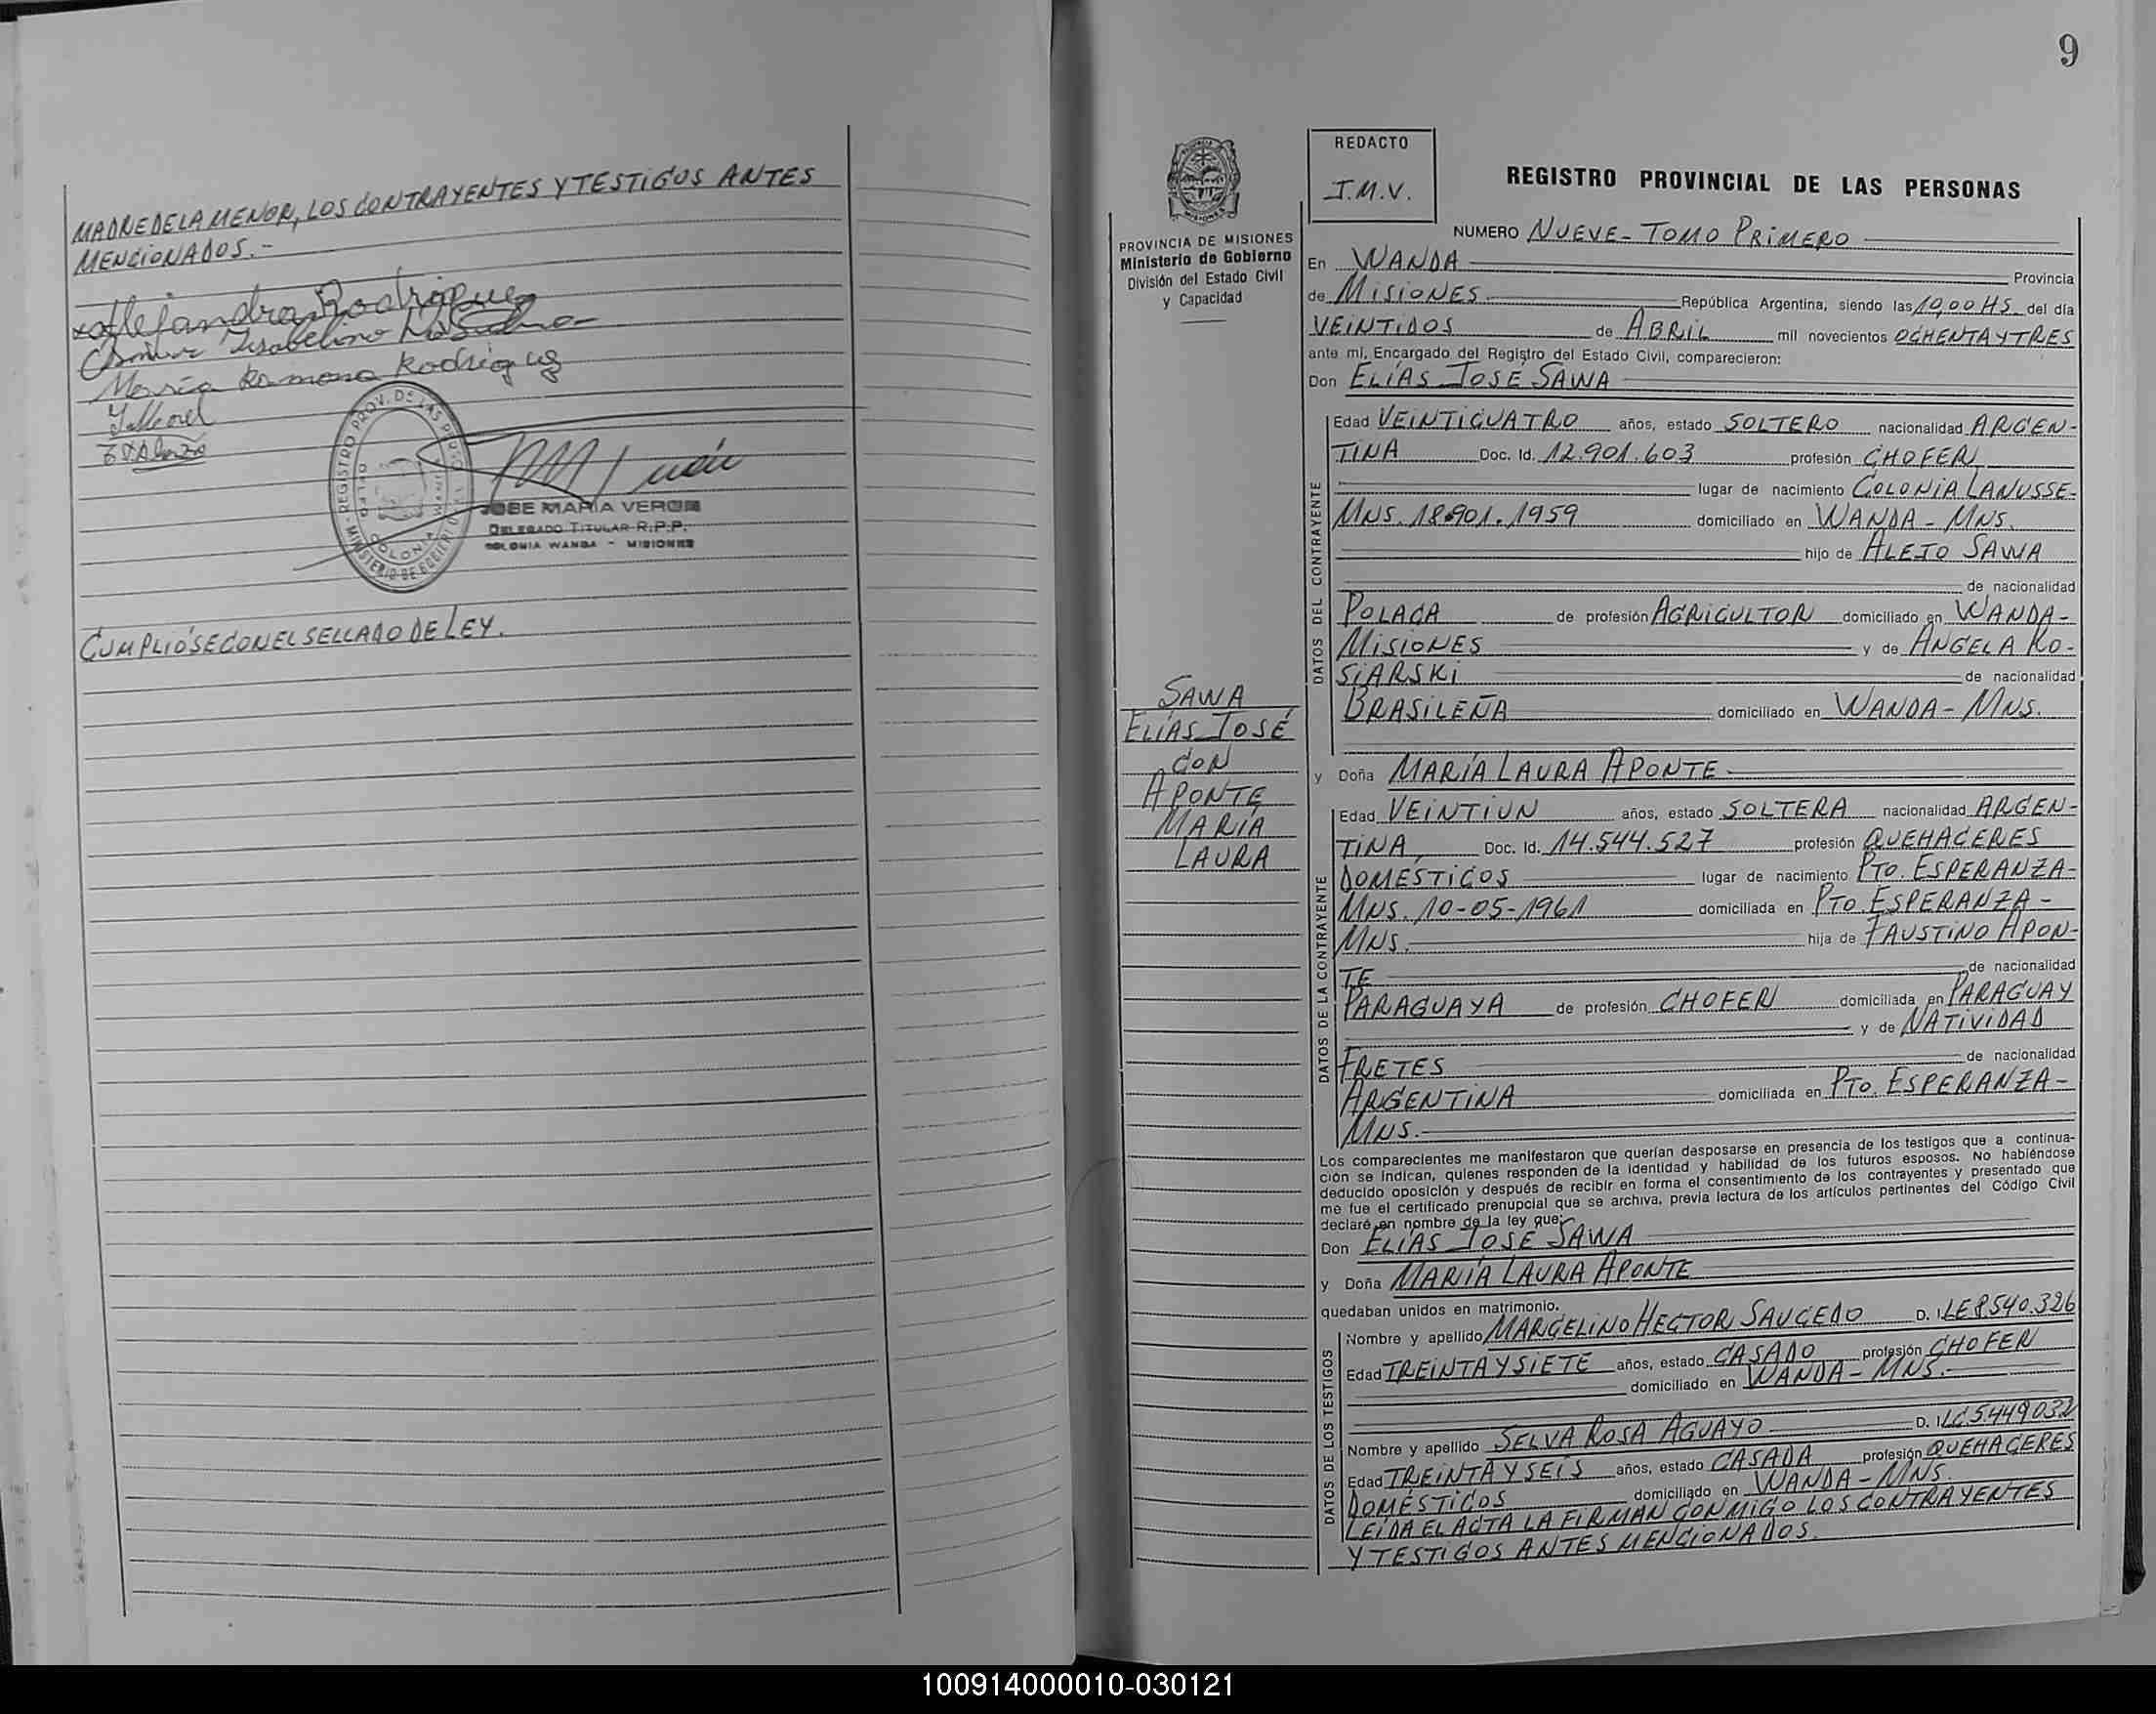 MADRE DE LA MENOR, LOS CONTRAYENTES Y TESTIGOS ANTES
MENCIONADOS.-
Alejandra Rodríguez
Isabelino
María Ramona Rodríguez
REGISTRO PROV. DE LAS PERSONAS
MINISTERIO DE GOBIERNO
COLONIA WANDA
JOSE MARIA VERON
DELEGADO TITULAR R.P.P.
COLONIA WANDA - MISIONES
CUMPLIÓSE CON EL SELLADO DE LEY.
9
PROVINCIA DE MISIONES
Ministerio de Gobierno
División del Estado Civil
y Capacidad
SAWA
ELÍAS JOSÉ
CON
APONTE
MARÍA
LAURA
REDACTO
J.M.V.
REGISTRO PROVINCIAL DE LAS PERSONAS
NUMERO NUEVE - TOMO PRIMERO
En WANDA Provincia
de MISIONES República Argentina, siendo las 10,00 HS del día
VEINTIDOS de ABRIL mil novecientos OCHENTA Y TRES
ante mí, Encargado del Registro del Estado Civil, comparecieron:
Don ELÍAS JOSÉ SAWA
DATOS DEL CONTRAYENTE
Edad VEINTICUATRO años, estado SOLTERO nacionalidad ARGEN-
TINA Doc. Id. 12.901.603 profesión CHOFER
lugar de nacimiento COLONIA LANUSSE-
MNS. 18.01.1959 domiciliado en WANDA - MNS.
hijo de ALEJO SAWA
de nacionalidad
POLACA de profesión AGRICULTOR domiciliado en WANDA-
MISIONES y de ANGELA KO-
SIARSKI de nacionalidad
BRASILEÑA domiciliado en WANDA - MNS.
y Doña MARÍA LAURA APONTE
DATOS DE LA CONTRAYENTE
Edad VEINTIUN años, estado SOLTERA nacionalidad ARGEN-
TINA Doc. Id. 14.544.527 profesión QUEHACERES
DOMÉSTICOS lugar de nacimiento PTO. ESPERANZA-
MNS. 10-05-1961 domiciliada en PTO. ESPERANZA -
MNS. hija de FAUSTINO APON-
TE de nacionalidad
PARAGUAYA de profesión CHOFER domiciliada en PARAGUAY
y de NATIVIDAD
FRETES de nacionalidad
ARGENTINA domiciliada en PTO. ESPERANZA -
MNS.
Los comparecientes me manifestaron que querían desposarse en presencia de los testigos que a continua-
ción se indican, quienes responden de la identidad y habilidad de los futuros esposos. No habiéndose
deducido oposición y después de recibir en forma el consentimiento de los contrayentes y presentado que
me fue el certificado prenupcial que se archiva, previa lectura de los artículos pertinentes del Código Civil
declaré en nombre de la ley que:
Don ELÍAS JOSÉ SAWA
y Doña MARÍA LAURA APONTE
quedaban unidos en matrimonio.
DATOS DE LOS TESTIGOS
Nombre y apellido MARCELINO HECTOR SAUCEDO D. I. LE 8.540.326
Edad TREINTA Y SIETE años, estado CASADO profesión CHOFER
domiciliado en WANDA - MNS.-
Nombre y apellido SELVA ROSA AGUAYO D. I. LC 5.449.032
Edad TREINTA Y SEIS años, estado CASADA profesión QUEHACERES
DOMÉSTICOS domiciliado en WANDA - MNS.
LEÍDA EL ACTA LA FIRMAN CONMIGO LOS CONTRAYENTES
Y TESTIGOS ANTES MENCIONADOS.
100914000010-030121